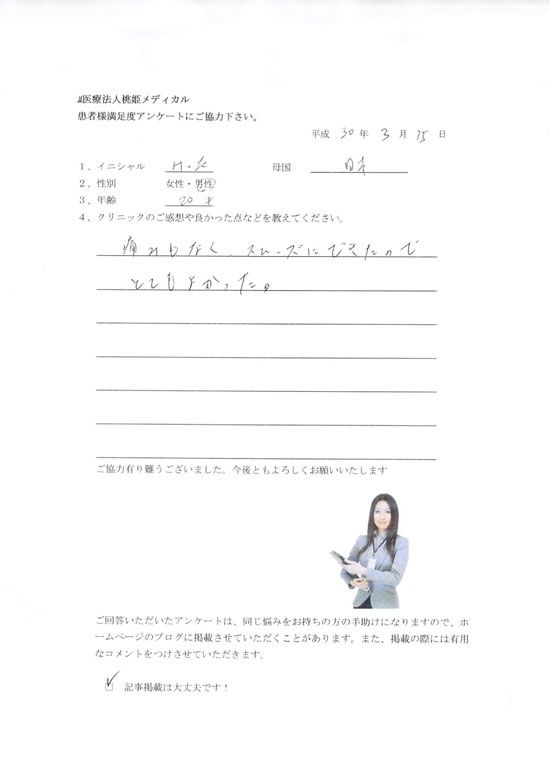 医療法人桃姫メディカル
患者様満足度アンケートにご協力下さい。
平成 30 年 3 月 15 日
1、イニシャル M・ 母国 日本
2、性別 女性・男性
3、年齢 20 才
4、クリニックのご感想や良かった点などを教えてください。
痛みもなく、スムーズにできたので
とてもよかった。
ご協力有り難うございました。今後ともよろしくお願いいたします
ご回答いただいたアンケートは、同じ悩みをお持ちの方の手助けになりますので、ホ
ームページのブログに掲載させていただくことがあります。また、掲載の際には有用
なコメントをつけさせていただきます。
記事掲載は大丈夫です！